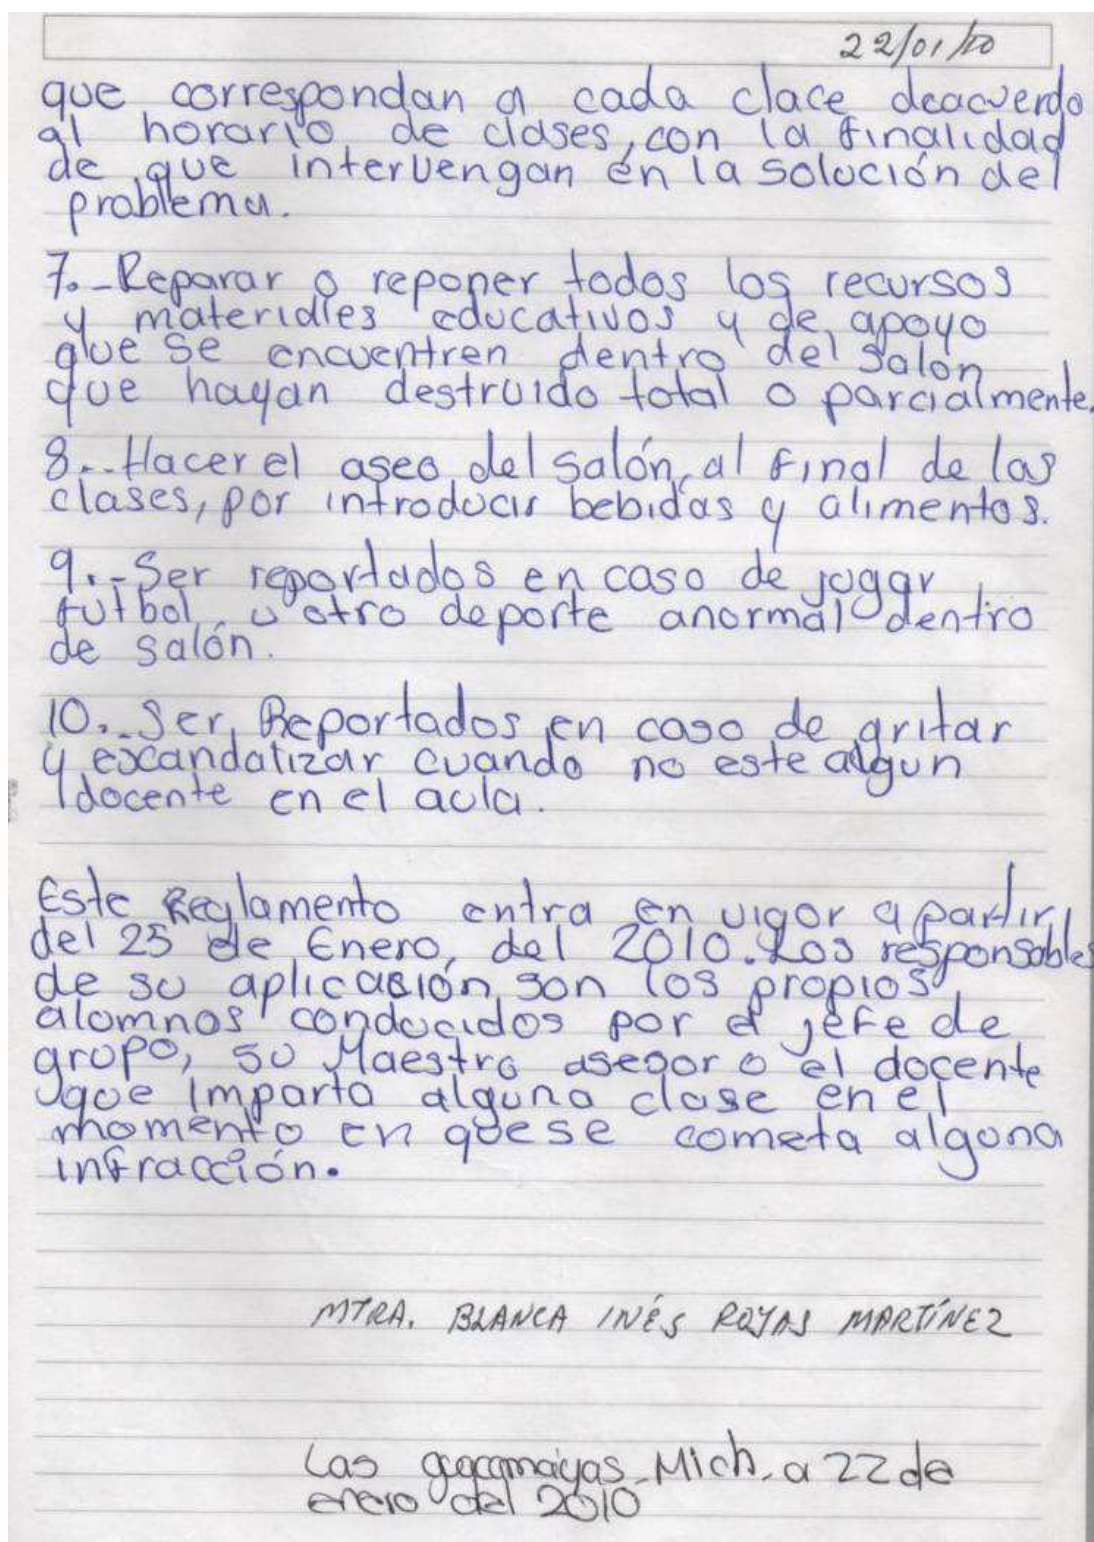 22/01/10
que correspondan a cada clace deacuerdo
al horario de clases, con la finalidad
de que intervengan en la solución del
problema.
7.-Reparar o reponer todos los recursos
y materiales educativos y de apoyo
que se encuentren dentro del salon
que hayan destruido total o parcialmente.
8.-Hacer el aseo del salón, al final de las
clases, por introducir bebidas y alimentos.
9.-Ser reportados en caso de jugar
futbol u otro deporte anormal dentro
de salón.
10.-Ser Reportados en caso de gritar
y escandalizar cuando no este algun
docente en el aula.
Este Reglamento entra en vigor a partir
del 25 de Enero, del 2010. Los responsables
de su aplicación son los propios
alomnos conducidos por el jefe de
grupo, su Maestro asesor o el docente
que imparta alguna clase en el
momento en que se cometa alguna
infracción.
MTRA. BLANCA INÉS ROJAS MARTÍNEZ
Las guacamayas, Mich. a 22 de
enero del 2010